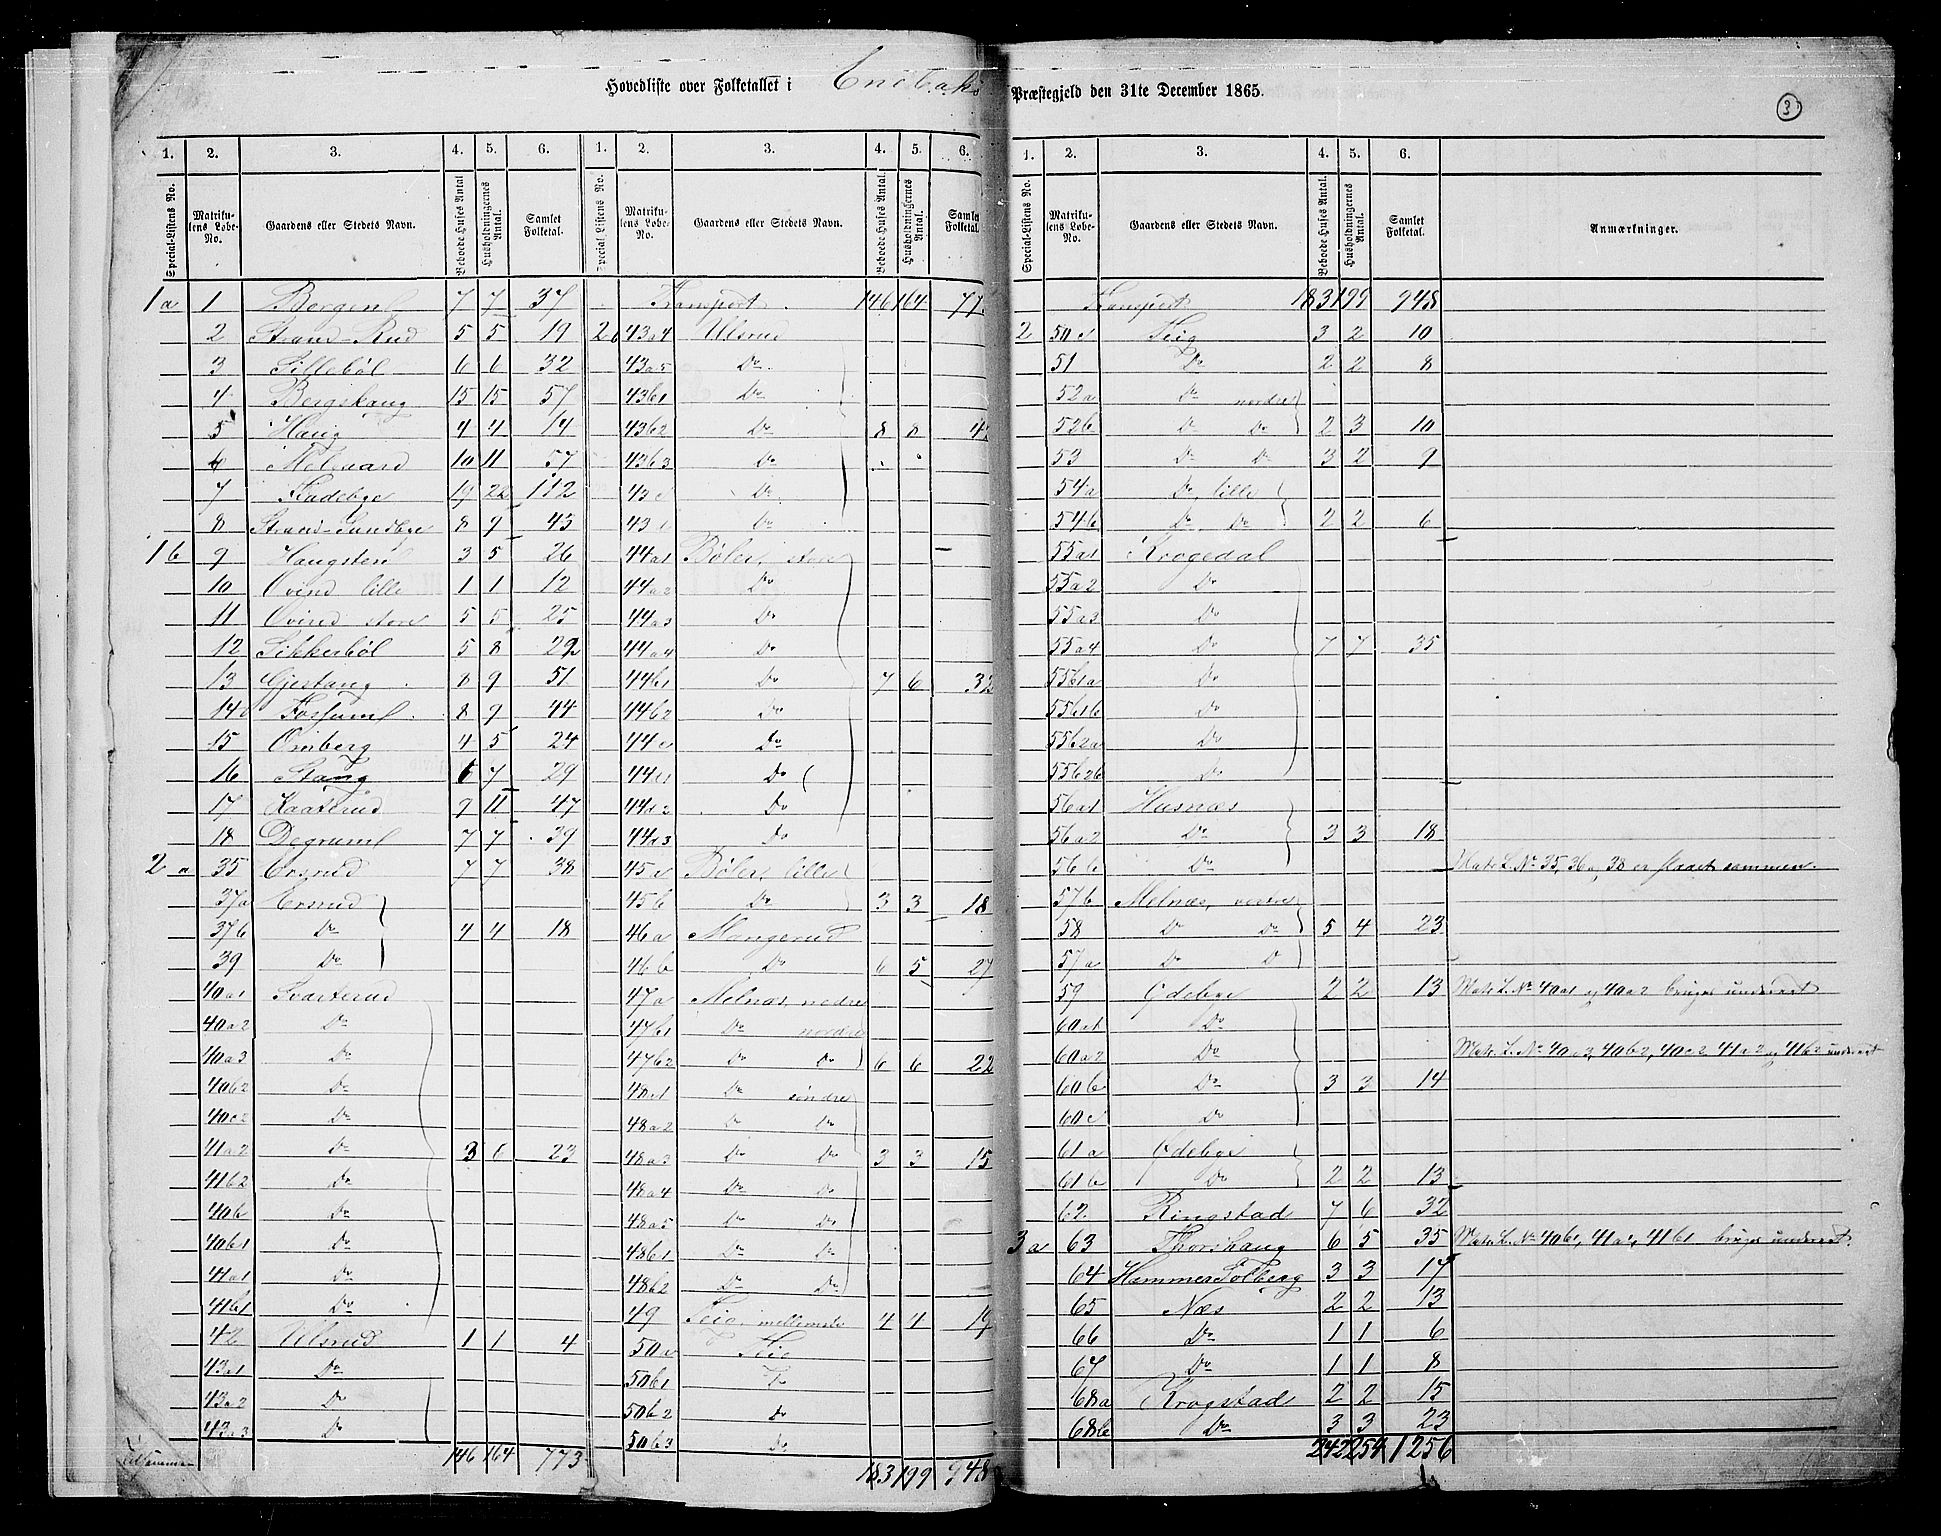 Hovedliste over Folketallet i Enebak Præstegjeld den 31te December 1865.
3
1. 2. 3. 4. 5. 6. 1. 2. 3. 4. 5. 6.
Special-Listens No. Matrikulens Løbe-No. Gaardens eller Stedets Navn. Beboede Huses Antal Husholdningernes Antal. Samlet Folketal. Special-Listens No. Matrikulens Løbe-No. Gaardens eller Stedets Navn. Beboede Huses Antal. Husholdningernes Antal. Samlet Folketal.
1a 1 Bergen 7 7 37 Transport 146 164 77
2 Strand-Rud 5 5 19 2b 43a4 Ulsrud
3 Sillebøl 6 6 32 43a5 Do
4 Bergskaug 15 15 57 43b1 Do
5 Haug 4 4 14 43b2 Do 8 8 42
6 10 11 57 43b3 Do
7 Fladebye 19 22 112 43c Do
8 Strand-Sundbye 8 9 45 43 Do
1b 9 Haugsten 3 5 26 44a1 Bøler, store
10 Ovind lille 1 1 12 44a2 Do
11 Ovind store 5 5 25 44a3 Do
12 Sikkerbøl 5 8 29 44a4 Do
13 Gjestang 8 9 51 44b1 Do 7 6 32
14 8 9 44 44b2 Do
15 Omberg 4 5 24 44c Do
16 Stang 6 7 29 44 Do
17 Kaaterud 9 11 47 44 2 Do
18 Degrum 7 7 39 44 3 Do
2a 35 Ersrud 7 7 38 45a Bøler, lille
37a Ersrud 45b Do 3 3 18
37b Do 4 4 18 46a Mangerud
39 Do 46b Do 6 5 27
40a1 Svarterud 47a Melnæs, nedre
40a2 Do 47b1 Do nordre
40a3 Do 47b2 Do Do 6 6 22
40b2 Do 48a1 Do søndre
40c2 Do 48a2 Do Do
41a2 Do 3 6 23 48a3 Do Do 3 3 15
41b2 Do 48a4 Do Do
40b Do 48a5 Do Do
40b1 Do 48b1 Do Do
41a1 Do 48b2 Do Do
41b1 Do 49 mellemste 4 4 19
42 Ulsrud 1 1 4 50a
43a1 Do 50b1
43a2 Do 50b2 Do
43a3 Do 50b3 Do
146 164 773 183 199 948
1. 2. 3. 4. 5. 6.
Special-Listens No. Matrikulens Løbe-No. Gaardens eller Stedets Navn. Beboede Huses Antal. Husholdningernes Antal. Samlet Folketal. Anmærkninger.
Transport 183 199 948
2 50c 3 2 10
51 Do 2 2 8
52a Do nordre
52b Do Do 2 3 10
53 Do Do 3 2 9
54a Do lille
54b Do Do 2 2 6
55a1 Krogedal
55a2 Do
55a3 Do
55a4 Do 7 7 35
55b1a Do
55b1b Do
55b2a Do
55b2b Do
56a1 Husnæs
56a2 Do 3 3 18
56b Do Matr. L. No 35, 36 og 38 er slaaet sammen.
57b Melnæs, vestre
58 Do Do 5 4 23
57a Do Do
59 Ydebye 2 2 13 Matr. L. No 40a1 og 40a2 bruges underet
60a1 Do
60a2 Do Matr. L. No 40a3, 40b2, 40c2, 41a2 og 41b2 underet
60b Do 3 3 14
60c Do
61a Ydebye
61b Do 2 2 13
62 Ringstad 7 6 32
3a 63 Thorshaug 6 5 35 Matr. L. No 40b1, 41a1, 41b1 bruges underet.
64 Hammer Solberg 3 3 17
65 Næs 2 2 13
66 Do 1 1 6
67 Do 1 1 8
68a Krogstad 2 2 15
68b Do 3 3 23
242 254 1256